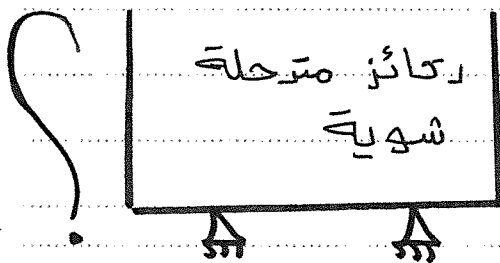 ركائز متزحلة
شوية
؟